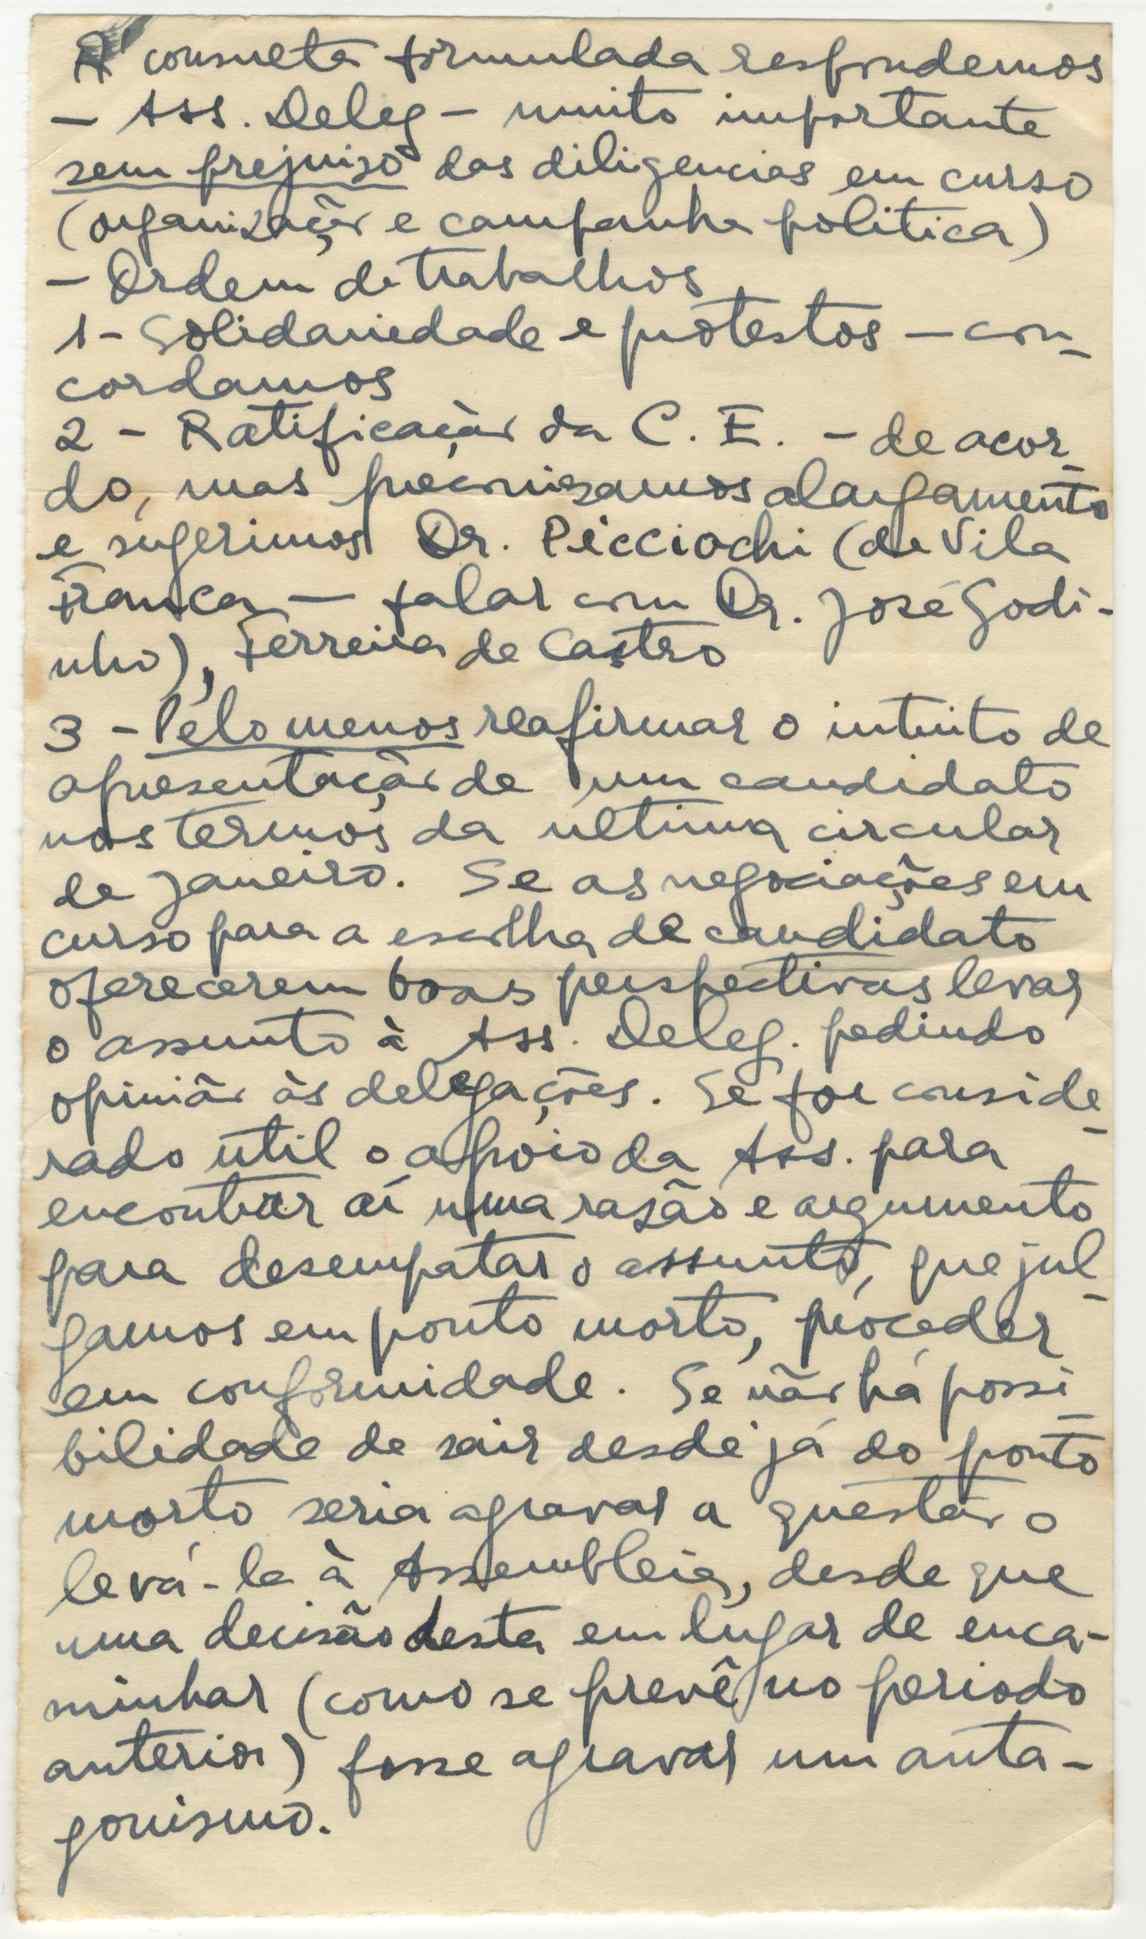 À consulta formulada respondemos
- Ass. Deleg - muito importante
sem prejuizo das diligencias em curso
(organização e campanha politica)
- Ordem de trabalhos
1 - Solidariedade e protestos - con-
cordamos
2 - Ratificação da C. E. - de acor-
do, mas preconizamos alargamento
e sugerimos Dr. Picciochi (de Vila
Franca - falar com Dr. José Godi-
nho), Ferreira de Castro
3 - Pelo menos reafirmar o intuito de
apresentação de um candidato
nos termos da ultima circular
de Janeiro. Se as negociações em
curso para a escolha de candidato
oferecerem boas perspectivas levar
o assunto à Ass. Deleg. pedindo
opinião às delegações. Se for conside-
rado útil o apoio da Ass. para
encontrar aí uma razão e argumento
para desempatar o assunto, que jul-
gamos em ponto morto, proceder
em conformidade. Se não há possi-
bilidade de sair desde já do ponto
morto seria agravar a questão o
levá-la à Assembleia, desde que
uma decisão desta em lugar de enca-
minhar (como se prevê no periodo
anterior) fosse agravar um anta-
gonismo.